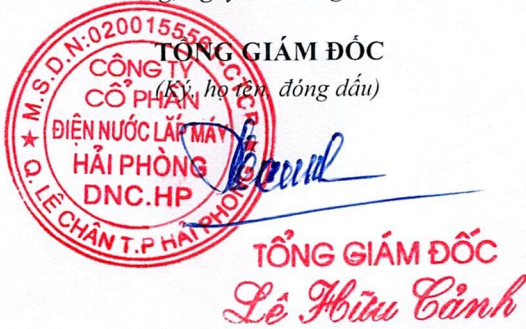 TỔNG GIÁM ĐỐC
(Ký, họ tên, đóng dấu)
M.S.D.N:020015556
C.T.C.P
CÔNG TY
CỔ PHẦN
ĐIỆN NƯỚC LẮP MÁY
HẢI PHÒNG
DNC.HP
Q. LÊ CHÂN T.P HẢI PHÒNG
TỔNG GIÁM ĐỐC
Lê Hữu Cảnh